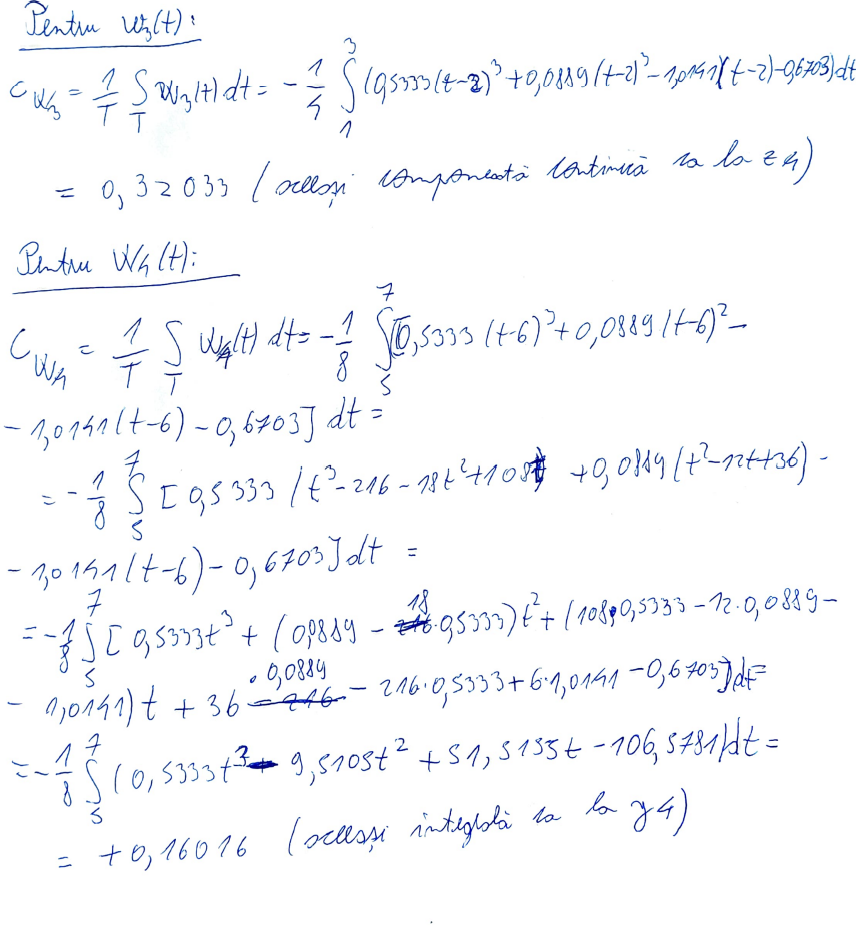 Pentru w₃(t):
C_{W₃} = 1/T ∫_T W₃(t) dt = - 1/4 ∫₁³ (0,5333(t-2)³ + 0,0889(t-2)³ - 1,0141(t-2) - 0,6703) dt
= 0,32033 (aceeași componentă continuă ca la z4)
Pentru W₄(t):
C_{W₄} = 1/T ∫_T W₄(t) dt = - 1/8 ∫₅⁷ [0,5333 (t-6)³ + 0,0889 (t-6)² -
- 1,0141(t-6) - 0,6703] dt =
= - 1/8 ∫₅⁷ [0,5333 (t³ - 216 - 18t² + 108t) + 0,0889 (t² - 12t + 36) -
- 1,0141(t-6) - 0,6703] dt =
= - 1/8 ∫₅⁷ [0,5333t³ + (0,0889 - 18·0,5333)t² + (108·0,5333 - 12·0,0889 -
- 1,0141)t + 36·0,0889 - 216·0,5333 + 6·1,0141 - 0,6703] dt =
= - 1/8 ∫₅⁷ (0,5333t³ - 9,5105t² + 51,5135t - 106,5781) dt =
= +0,16016 (aceeași integrală ca la y4)